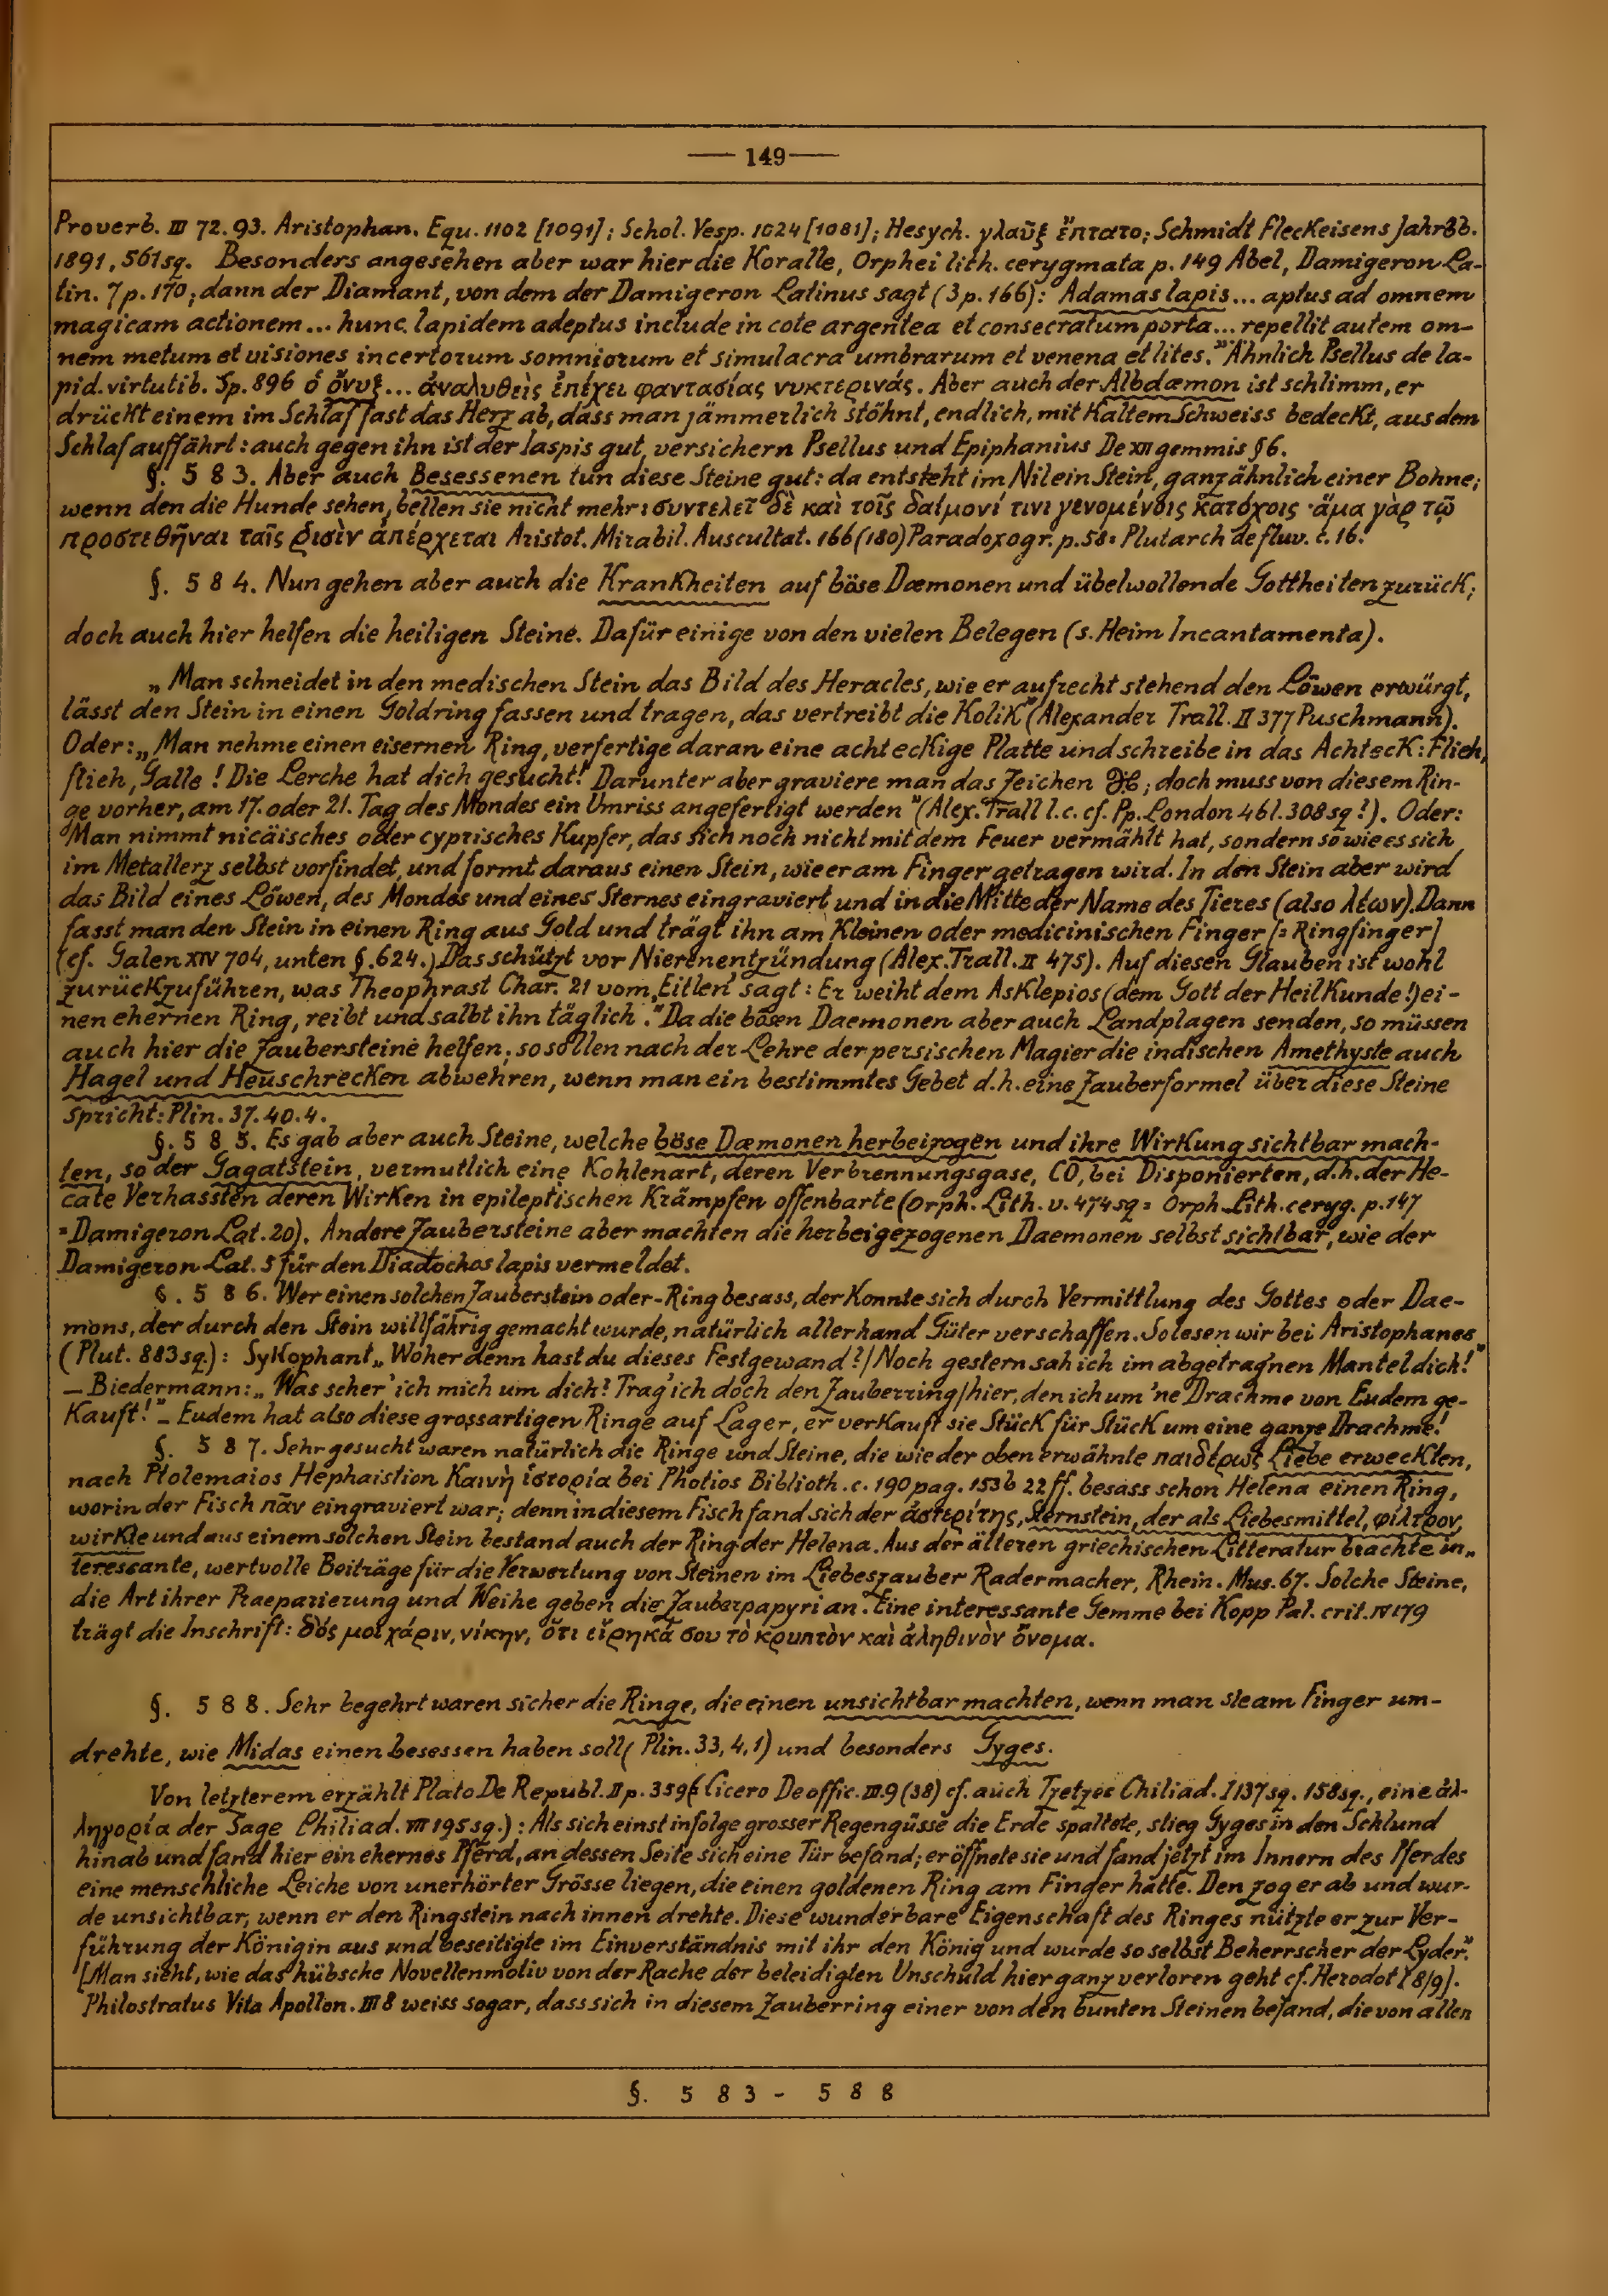 — 149 —
Proverb. III 72. 93. Aristophan. Equ. 1102 [1091]; Schol. Vesp. 1024 [1081]; Hesych. γλαῦξ ἔπτατο; Schmidt Fleckeisens Jahrbb.
1891, 561 sq. Besonders angesehen aber war hier die Koralle, Orphei lith. cerygmata p. 149 Abel, Damigeron La-
tin. 7 p. 170; dann der Diamant, von dem der Damigeron Latinus sagt (3 p. 166): Adamas lapis... aptus ad omnem
magicam actionem... hunc lapidem adeptus include in cote argentea et consecratum porta... repellit autem om-
nem metum et visiones incertorum somniorum et simulacra umbrarum et venena et lites." Ähnlich Psellus de la-
pid. virtutib. Sp. 896 ὁ ὄνυξ... ἀναλυθεὶς ἐπέχει φαντασίας νυκτερινάς. Aber auch der Albdæmon ist schlimm, er
drückt einem im Schlaf fast das Herz ab, dass man jämmerlich stöhnt, endlich, mit kaltem Schweiss bedeckt, aus dem
Schlaf auffährt: auch gegen ihn ist der Iaspis gut, versichern Psellus und Epiphanius De XII gemmis § 6.
§. 583. Aber auch Besessenen tun diese Steine gut: da entsteht im Nil ein Stein, ganz ähnlich einer Bohne;
wenn den die Hunde sehen, bellen sie nicht mehr: συντελεῖ δὲ καὶ τοῖς δαίμονί τινι γενομένοις κατόχοις · ἅμα γὰρ τῷ
προστεθῆναι ταῖς ῥισὶν ἀπέρχεται Aristot. Mirabil. Auscultat. 166 (180) Paradoxogr. p. 58 = Plutarch de fluv. c. 16.
§. 584. Nun gehen aber auch die Krankheiten auf böse Dæmonen und übelwollende Gottheiten zurück;
doch auch hier helfen die heiligen Steine. Dafür einige von den vielen Belegen (s. Heim Incantamenta).
„Man schneidet in den medischen Stein das Bild des Heracles, wie er aufrecht stehend den Löwen erwürgt,
lässt den Stein in einen Goldring fassen und tragen, das vertreibt die Kolik" (Alexander Trall. II 377 Puschmann).
Oder: „Man nehme einen eisernen Ring, verfertige daran eine achteckige Platte und schreibe in das Achteck: Flieh,
flieh, Galle! Die Lerche hat dich gesucht! Darunter aber graviere man das Zeichen ; doch muss von diesem Rin-
ge vorher, am 17. oder 21. Tag des Mondes ein Umriss angefertigt werden" (Alex. Trall l.c. cf. Pp. London 46 l. 308 sq!). Oder:
"Man nimmt nicäisches oder cyprisches Kupfer, das sich noch nicht mit dem Feuer vermählt hat, sondern so wie es sich
im Metallerz selbst vorfindet, und formt daraus einen Stein, wie er am Finger getragen wird. In den Stein aber wird
das Bild eines Löwen, des Mondes und eines Sternes eingraviert und in die Mitte der Name des Tieres (also λέων). Dann
fasst man den Stein in einen Ring aus Gold und trägt ihn am kleinen oder medicinischen Finger [= Ringfinger]
(cf. Galen XIV 704, unten §. 624.) Das schützt vor Nierenentzündung (Alex. Trall. II 475). Auf diesen Glauben ist wohl
zurückzuführen, was Theophrast Char. 21 vom „Eitlen" sagt: Er weiht dem Asklepios (dem Gott der Heilkunde!) ei-
nen ehernen Ring, reibt und salbt ihn täglich." Da die bösen Daemonen aber auch Landplagen senden, so müssen
auch hier die Zaubersteine helfen; so sollen nach der Lehre der persischen Magier die indischen Amethyste auch
Hagel und Heuschrecken abwehren, wenn man ein bestimmtes Gebet d.h. eine Zauberformel über diese Steine
spricht: Plin. 37. 40. 4.
§. 585. Es gab aber auch Steine, welche böse Dæmonen herbeizogen und ihre Wirkung sichtbar mach-
ten, so der Gagatstein, vermutlich eine Kohlenart, deren Verbrennungsgase, CO, bei Disponierten, d.h. der He-
cate Verhassten deren Wirken in epileptischen Krämpfen offenbarte (Orph. Lith. v. 474 sq = Orph. Lith. ceryg. p. 147
= Damigeron Lat. 20). Andere Zaubersteine aber machten die herbeigezogenen Daemonen selbst sichtbar, wie der
Damigeron Lat. 5 für den Diadochos lapis vermeldet.
§. 586. Wer einen solchen Zauberstein oder -Ring besass, der konnte sich durch Vermittlung des Gottes oder Dae-
mons, der durch den Stein willfährig gemacht wurde, natürlich allerhand Güter verschaffen. So lesen wir bei Aristophanes
(Plut. 883 sq.): Sykophant „Woher denn hast du dieses Festgewand?/Noch gestern sah ich im abgetragnen Mantel dich!"
— Biedermann: „Was scher' ich mich um dich? Trag' ich doch den Zauberring/hier, den ich um 'ne Drachme von Eudem ge-
kauft!" – Eudem hat also diese grossartigen Ringe auf Lager, er verkauft sie Stück für Stück um eine ganze Drachme!
§. 587. Sehr gesucht waren natürlich die Ringe und Steine, die wie der oben erwähnte παιδέρως Liebe erweckten,
nach Ptolemaios Hephaistion Καινὴ ἱστορία bei Photios Biblioth. c. 190 pag. 153b 22 ff. besass schon Helena einen Ring,
worin der Fisch πᾶν eingraviert war; denn in diesem Fisch fand sich der ἀστερίτης, Sternstein, der als Liebesmittel, φίλτρον,
wirkte und aus einem solchen Stein bestand auch der Ring der Helena. Aus der älteren griechischen Litteratur brachte in„
teressante, wertvolle Beiträge für die Verwertung von Steinen im Liebeszauber Radermacher, Rhein. Mus. 67. Solche Steine,
die Art ihrer Praeparierung und Weihe geben die Zauberpapyri an. Eine interessante Gemme bei Kopp Pal. crit. IV 179
trägt die Inschrift: δός μοι χάριν, νίκην, ὅτι εἴρηκά σου τὸ κρυπτὸν καὶ ἀληθινὸν ὄνομα.
§. 588. Sehr begehrt waren sicher die Ringe, die einen unsichtbar machten, wenn man sie am Finger um-
drehte, wie Midas einen besessen haben soll (Plin. 33, 4, 1) und besonders Gyges.
Von letzterem erzählt Plato De Republ. II p. 359 (Cicero De offic. III. 9 (38) cf. auch Tzetzes Chiliad. I 137 sq. 158 sq., eine ἀλ-
ληγορία der Sage Philiad. VII 195 sq.): Als sich einst infolge grosser Regengüsse die Erde spaltete, stieg Gyges in den Schlund
hinab und fand hier ein ehernes Pferd, an dessen Seite sich eine Tür befand; er öffnete sie und fand jetzt im Innern des Pferdes
eine menschliche Leiche von unerhörter Grösse liegen, die einen goldenen Ring am Finger hatte. Den zog er ab und wur-
de unsichtbar, wenn er den Ringstein nach innen drehte. Diese wunderbare Eigenschaft des Ringes nützte er zur Ver-
führung der Königin aus und beseitigte im Einverständnis mit ihr den König und wurde so selbst Beherrscher der Lyder."
[Man sieht, wie das hübsche Novellenmotiv von der Rache der beleidigten Unschuld hier ganz verloren geht cf. Herodot I 8/9].
Philostratus Vita Apollon. III 8 weiss sogar, dass sich in diesem Zauberring einer von den bunten Steinen befand, die von allen
§. 583 - 588